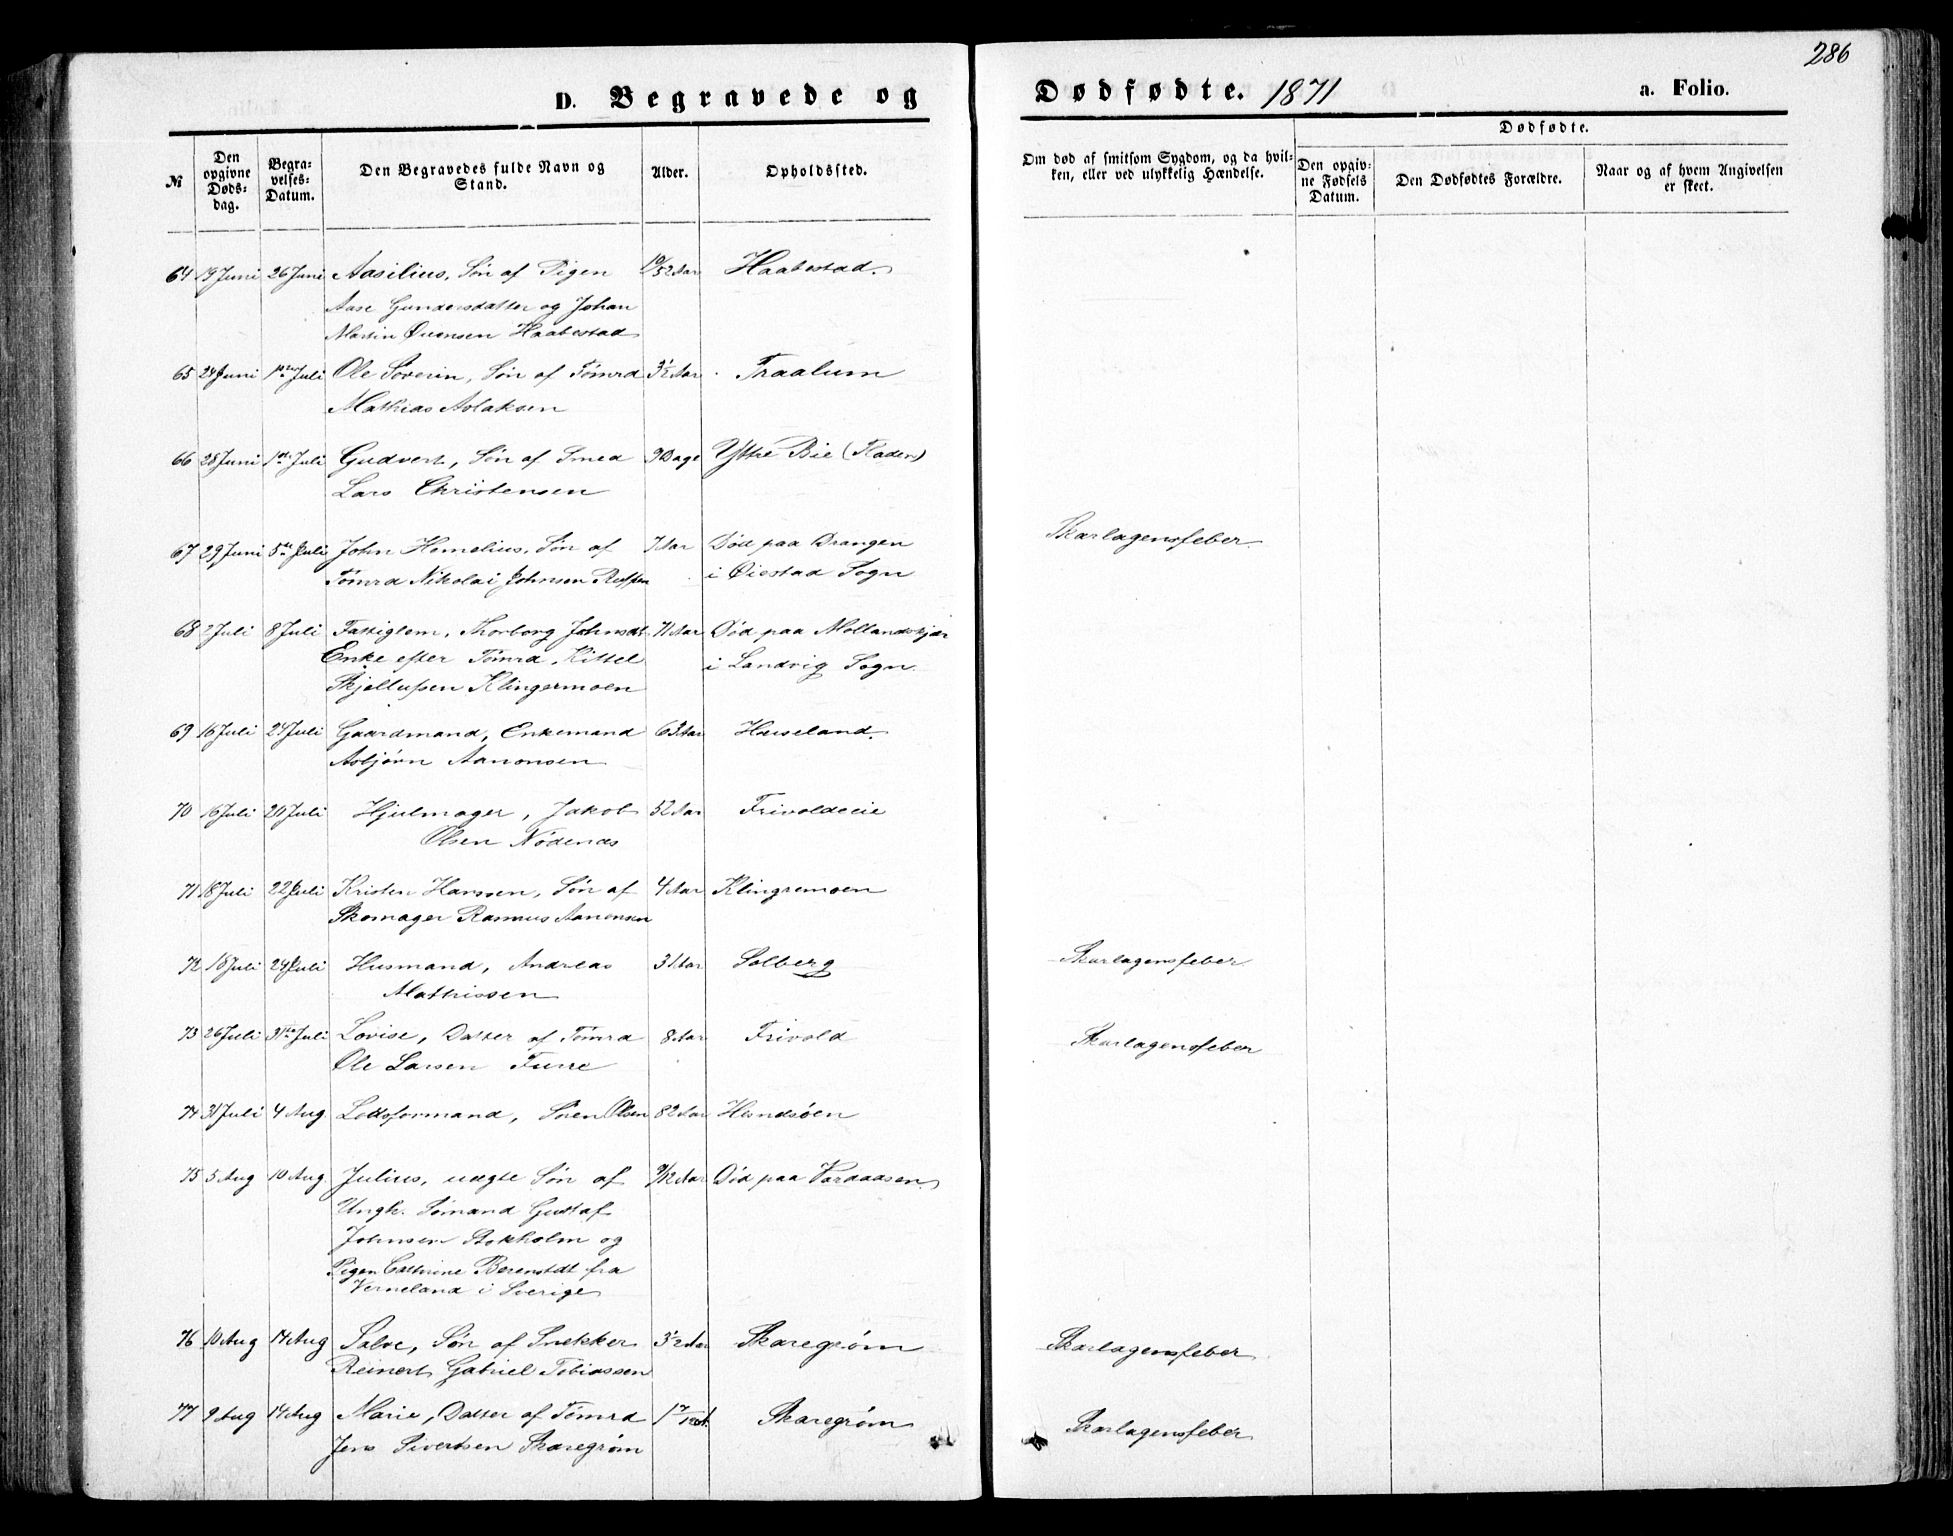 286
D. Begravede og Dødfødte. 1871 a. Folio.
№
Den opgivne Døds-dag.
Begra-velses-Datum.
Den Begravedes fulde Navn og Stand.
Alder.
Opholdssted.
Om død af smitsom Sygdom, og da hvil-ken, eller ved ulykkelig Hændelse.
Dødfødte.
Den opgiv-ne Fødsels Datum.
Den Dødfødtes Forældre.
Naar og af hvem Angivelsen er skeet.
64 19 Juni 26 Juni Aasilius, Søn af Pigen 10/52 Aar Haabestad.
Aase Gundersdatter og Johan
Martin Evensen Haabestad
65 24 Juni 1ste Juli Ole Severin, Søn af Tømrd 3½ Aar Traalum
Mathias Aslaksen
66 28 Juni 1ste Juli Gudvert, Søn af Smed 9 Dage Yttre Bie (Roden)
Lars Christensen
67 29 Juni 5te Juli John Homelius, Søn af 7 Aar Død paa Drangen Skarlagensfeber.
Tømrd Nikolai Johnsen i Øiestad Sogn
68 2 Juli 8 Juli Fattiglem, Thorborg Johnsdt 71 Aar Død paa Mollandskjær
Enke efter Tømrd. Kittel i Landvig Sogn.
Skjellufsen Klingermoen
69 16 Juli 24 Juli Gaardmand, Enkemand 63 Aar Hæseland.
Asbjørn Aanonsen
70 16 Juli 20 Juli Hjulmager, Jakob 52 Aar Frivoldeie
Olsen Nødenæs
71 18 Juli 22 Juli Kristen Hansen, Søn af 4 Aar Klingremoen
Skomager Rasmus Aanonsen
72 18 Juli 24 Juli Husmand, Andreas 31 Aar Solberg Skarlagensfeber
Mathissen
73 26 Juli 31te Juli Lovise, Datter af Tømrd 8 Aar Frivold Skarlagensfeber
Ole Larsen Furre
74 31 Juli 4 Aug. Lodsformand, Søren Olsen 82 Aar Hesndsøen
75 5 Aug 10 Aug. Julius, uægte Søn af 9/12 Aar Død paa Vardaasen
Ungk. Sømand Gustaf
Johnsen Stokholm og
Pigen Cathrine Berentdt fra
Verneland i Sverige
76 10 Aug 14 Aug Salve, Søn af Snekker 3½ Aar Skaregrøm Skarlagensfeber
Reinert Gabriel Tobiassen
77 9 Aug 14 Aug Marie, Datter af Tømrd 1 7/12 A. Skaregrøm Skarlagensfeber
Jens Sivertsen Skaregrøm